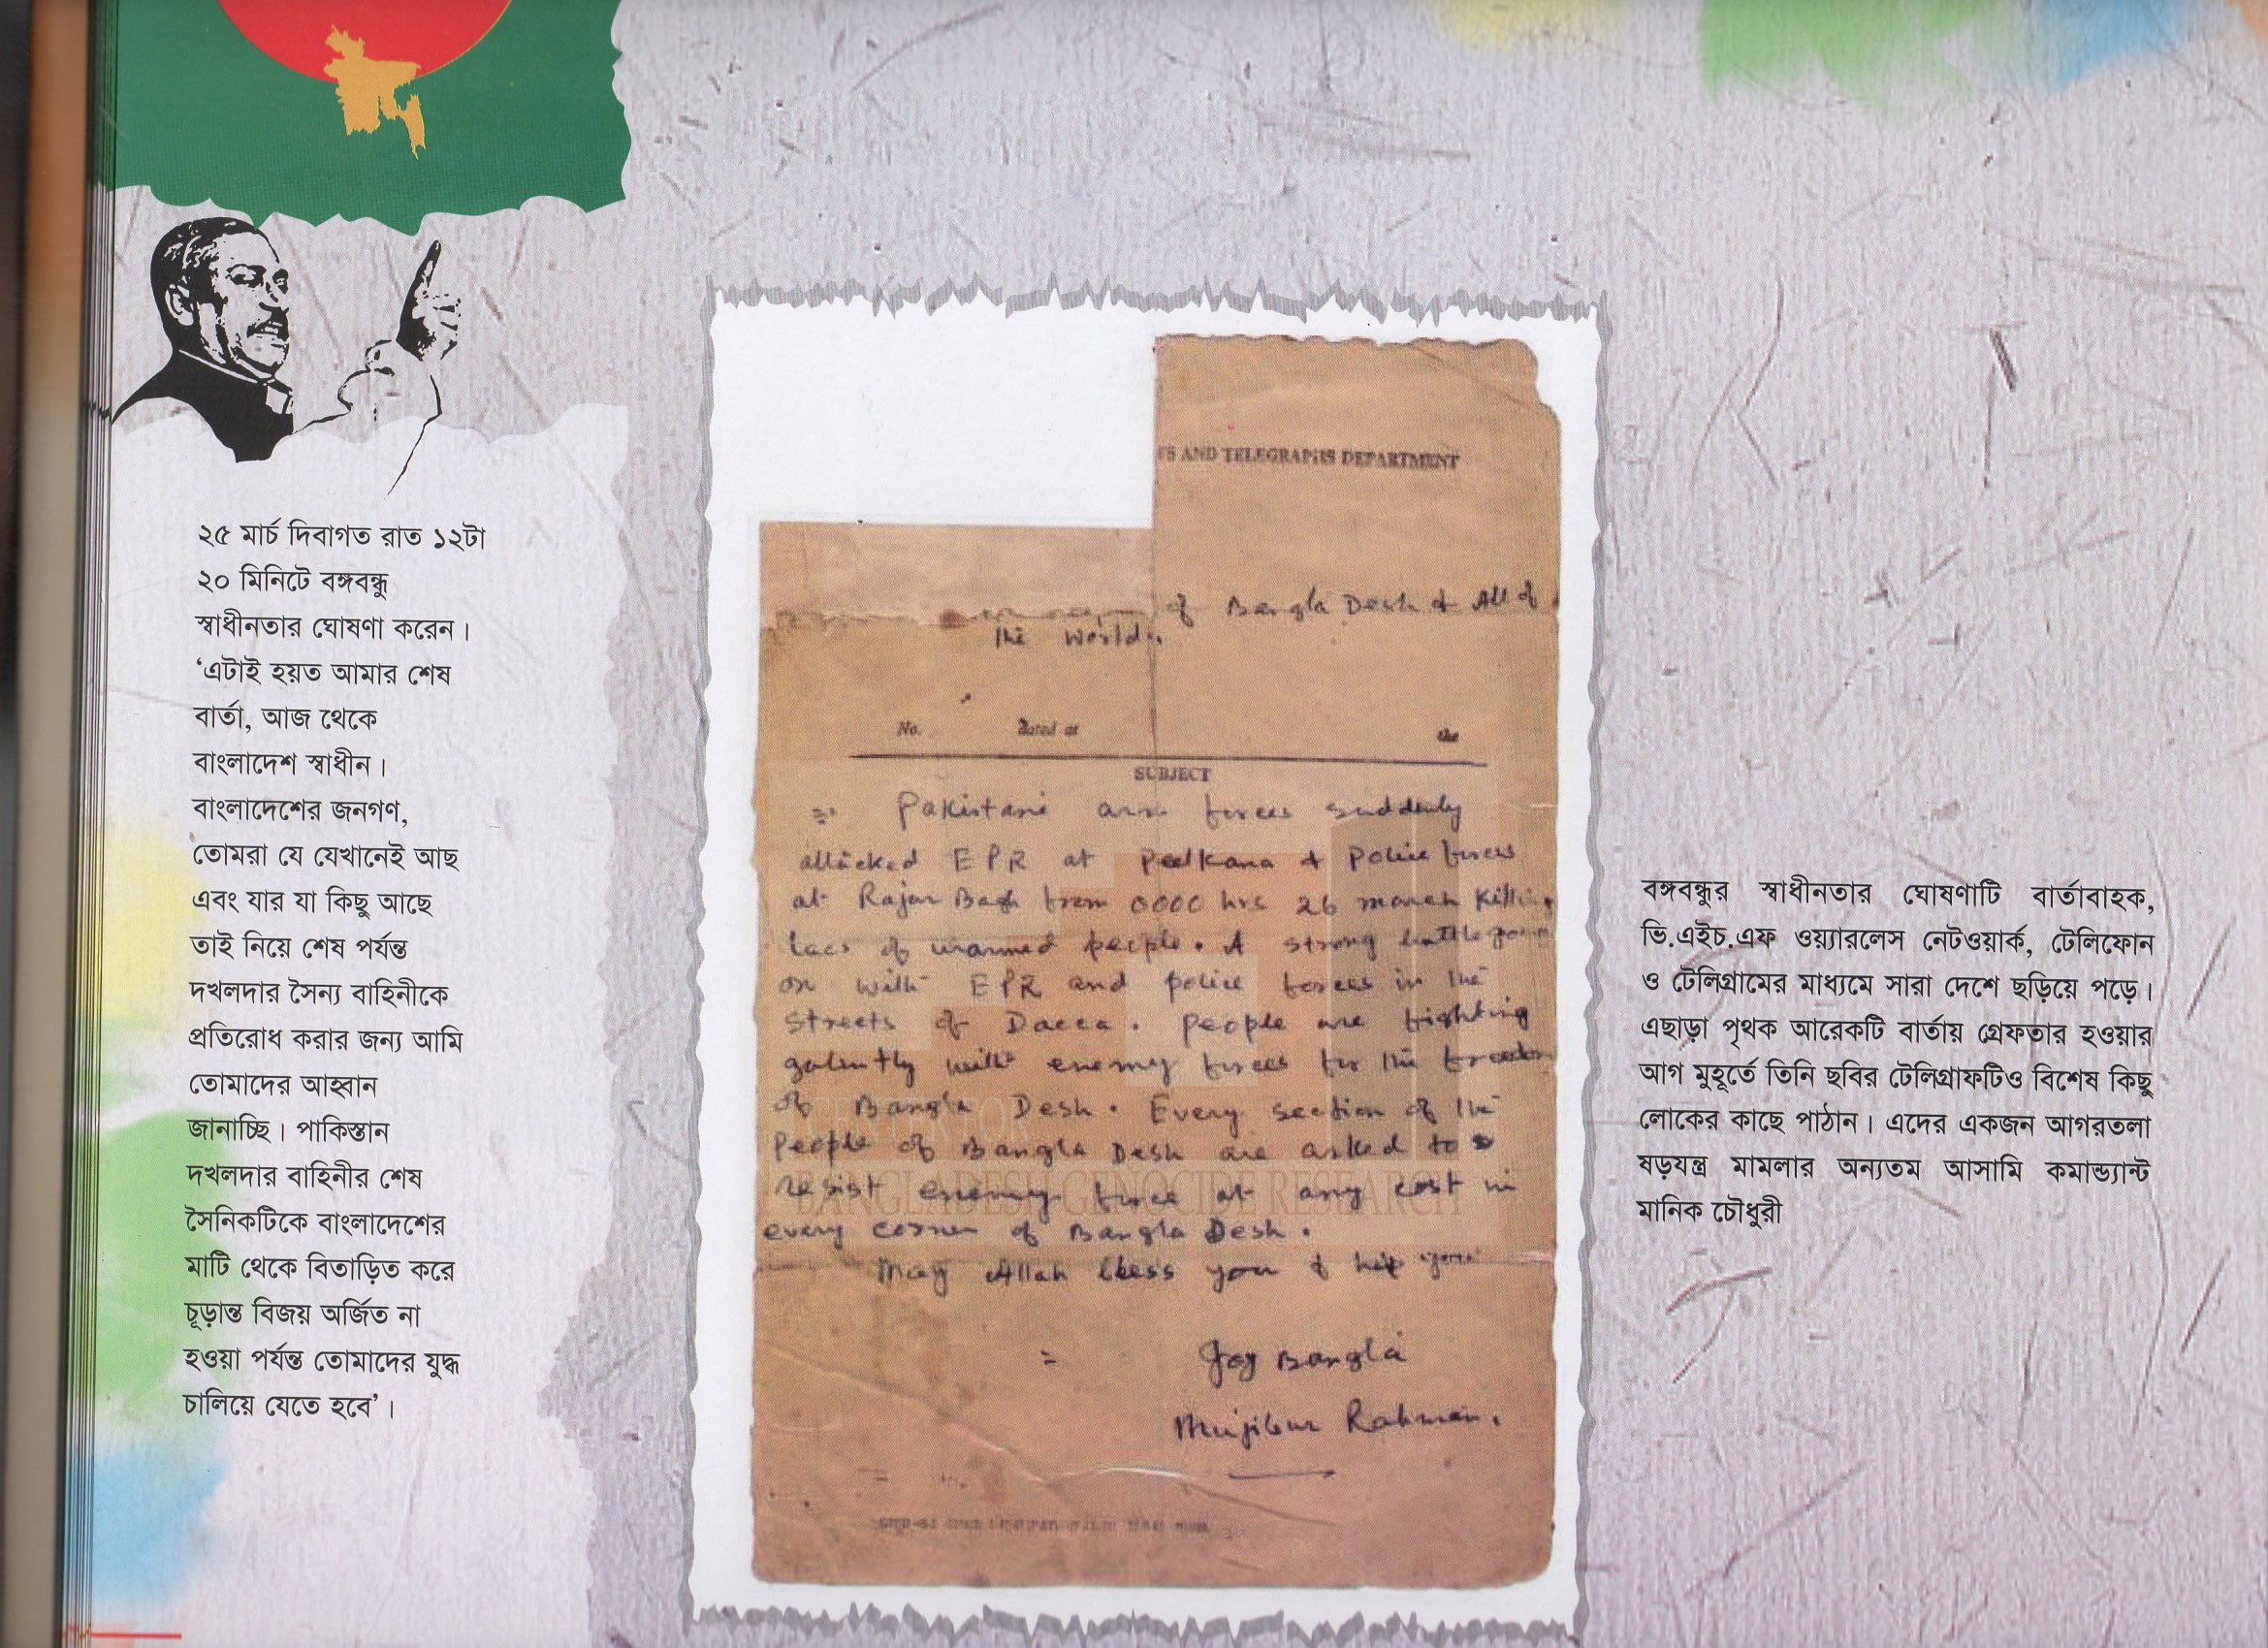 ২৫ মার্চ দিবাগত রাত ১২টা
২০ মিনিটে বঙ্গবন্ধু
স্বাধীনতার ঘোষণা করেন।
‘এটাই হয়ত আমার শেষ
বার্তা, আজ থেকে
বাংলাদেশ স্বাধীন।
বাংলাদেশের জনগণ,
তোমরা যে যেখানেই আছ
এবং যার যা কিছু আছে
তাই নিয়ে শেষ পর্যন্ত
দখলদার সৈন্য বাহিনীকে
প্রতিরোধ করার জন্য আমি
তোমাদের আহ্বান
জানাচ্ছি। পাকিস্তান
দখলদার বাহিনীর শেষ
সৈনিকটিকে বাংলাদেশের
মাটি থেকে বিতাড়িত করে
চূড়ান্ত বিজয় অর্জিত না
হওয়া পর্যন্ত তোমাদের যুদ্ধ
চালিয়ে যেতে হবে’।
TS AND TELEGRAPHS DEPARTMENT
of Bangla Desh & All of
the World.
No. dated at the
SUBJECT
Pakistani arm forces suddenly
attacked EPR at Peelkana & Police forces
at Rajar Bagh from 0000 hrs 26 march killing
lacs of unarmed people. A strong battle going
on with EPR and police forces in the
streets of Dacca. People are fighting
galantly with enemy forces for the freedom
of Bangla Desh. Every section of the
People of Bangla Desh are asked to
resist enemy force at any cost in
every corner of Bangla Desh.
May Allah bless you & help you
Joy Bangla
Mujibur Rahman.
BANGLADESH GENOCIDE RESEARCH
বঙ্গবন্ধুর স্বাধীনতার ঘোষণাটি বার্তাবাহক,
ভি.এইচ.এফ ওয়্যারলেস নেটওয়ার্ক, টেলিফোন
ও টেলিগ্রামের মাধ্যমে সারা দেশে ছড়িয়ে পড়ে।
এছাড়া পৃথক আরেকটি বার্তায় গ্রেফতার হওয়ার
আগ মুহূর্তে তিনি ছবির টেলিগ্রাফটিও বিশেষ কিছু
লোকের কাছে পাঠান। এদের একজন আগরতলা
ষড়যন্ত্র মামলার অন্যতম আসামি কমান্ড্যান্ট
মানিক চৌধুরী